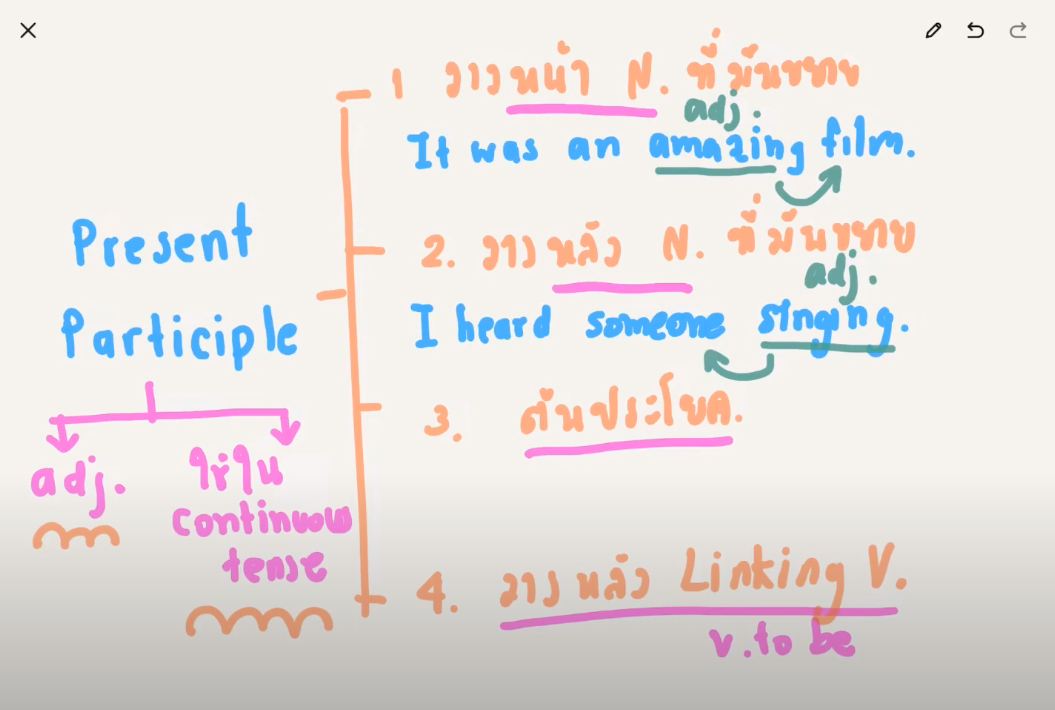 Present
Participle
adj.
ใช้ใน
continuous
tense
1 วางหน้า N. ที่มันขยาย
adj.
It was an amazing film.
2. วางหลัง N. ที่มันขยาย
adj.
I heard someone singing.
3. ต้นประโยค.
4. วางหลัง Linking V.
v. to be